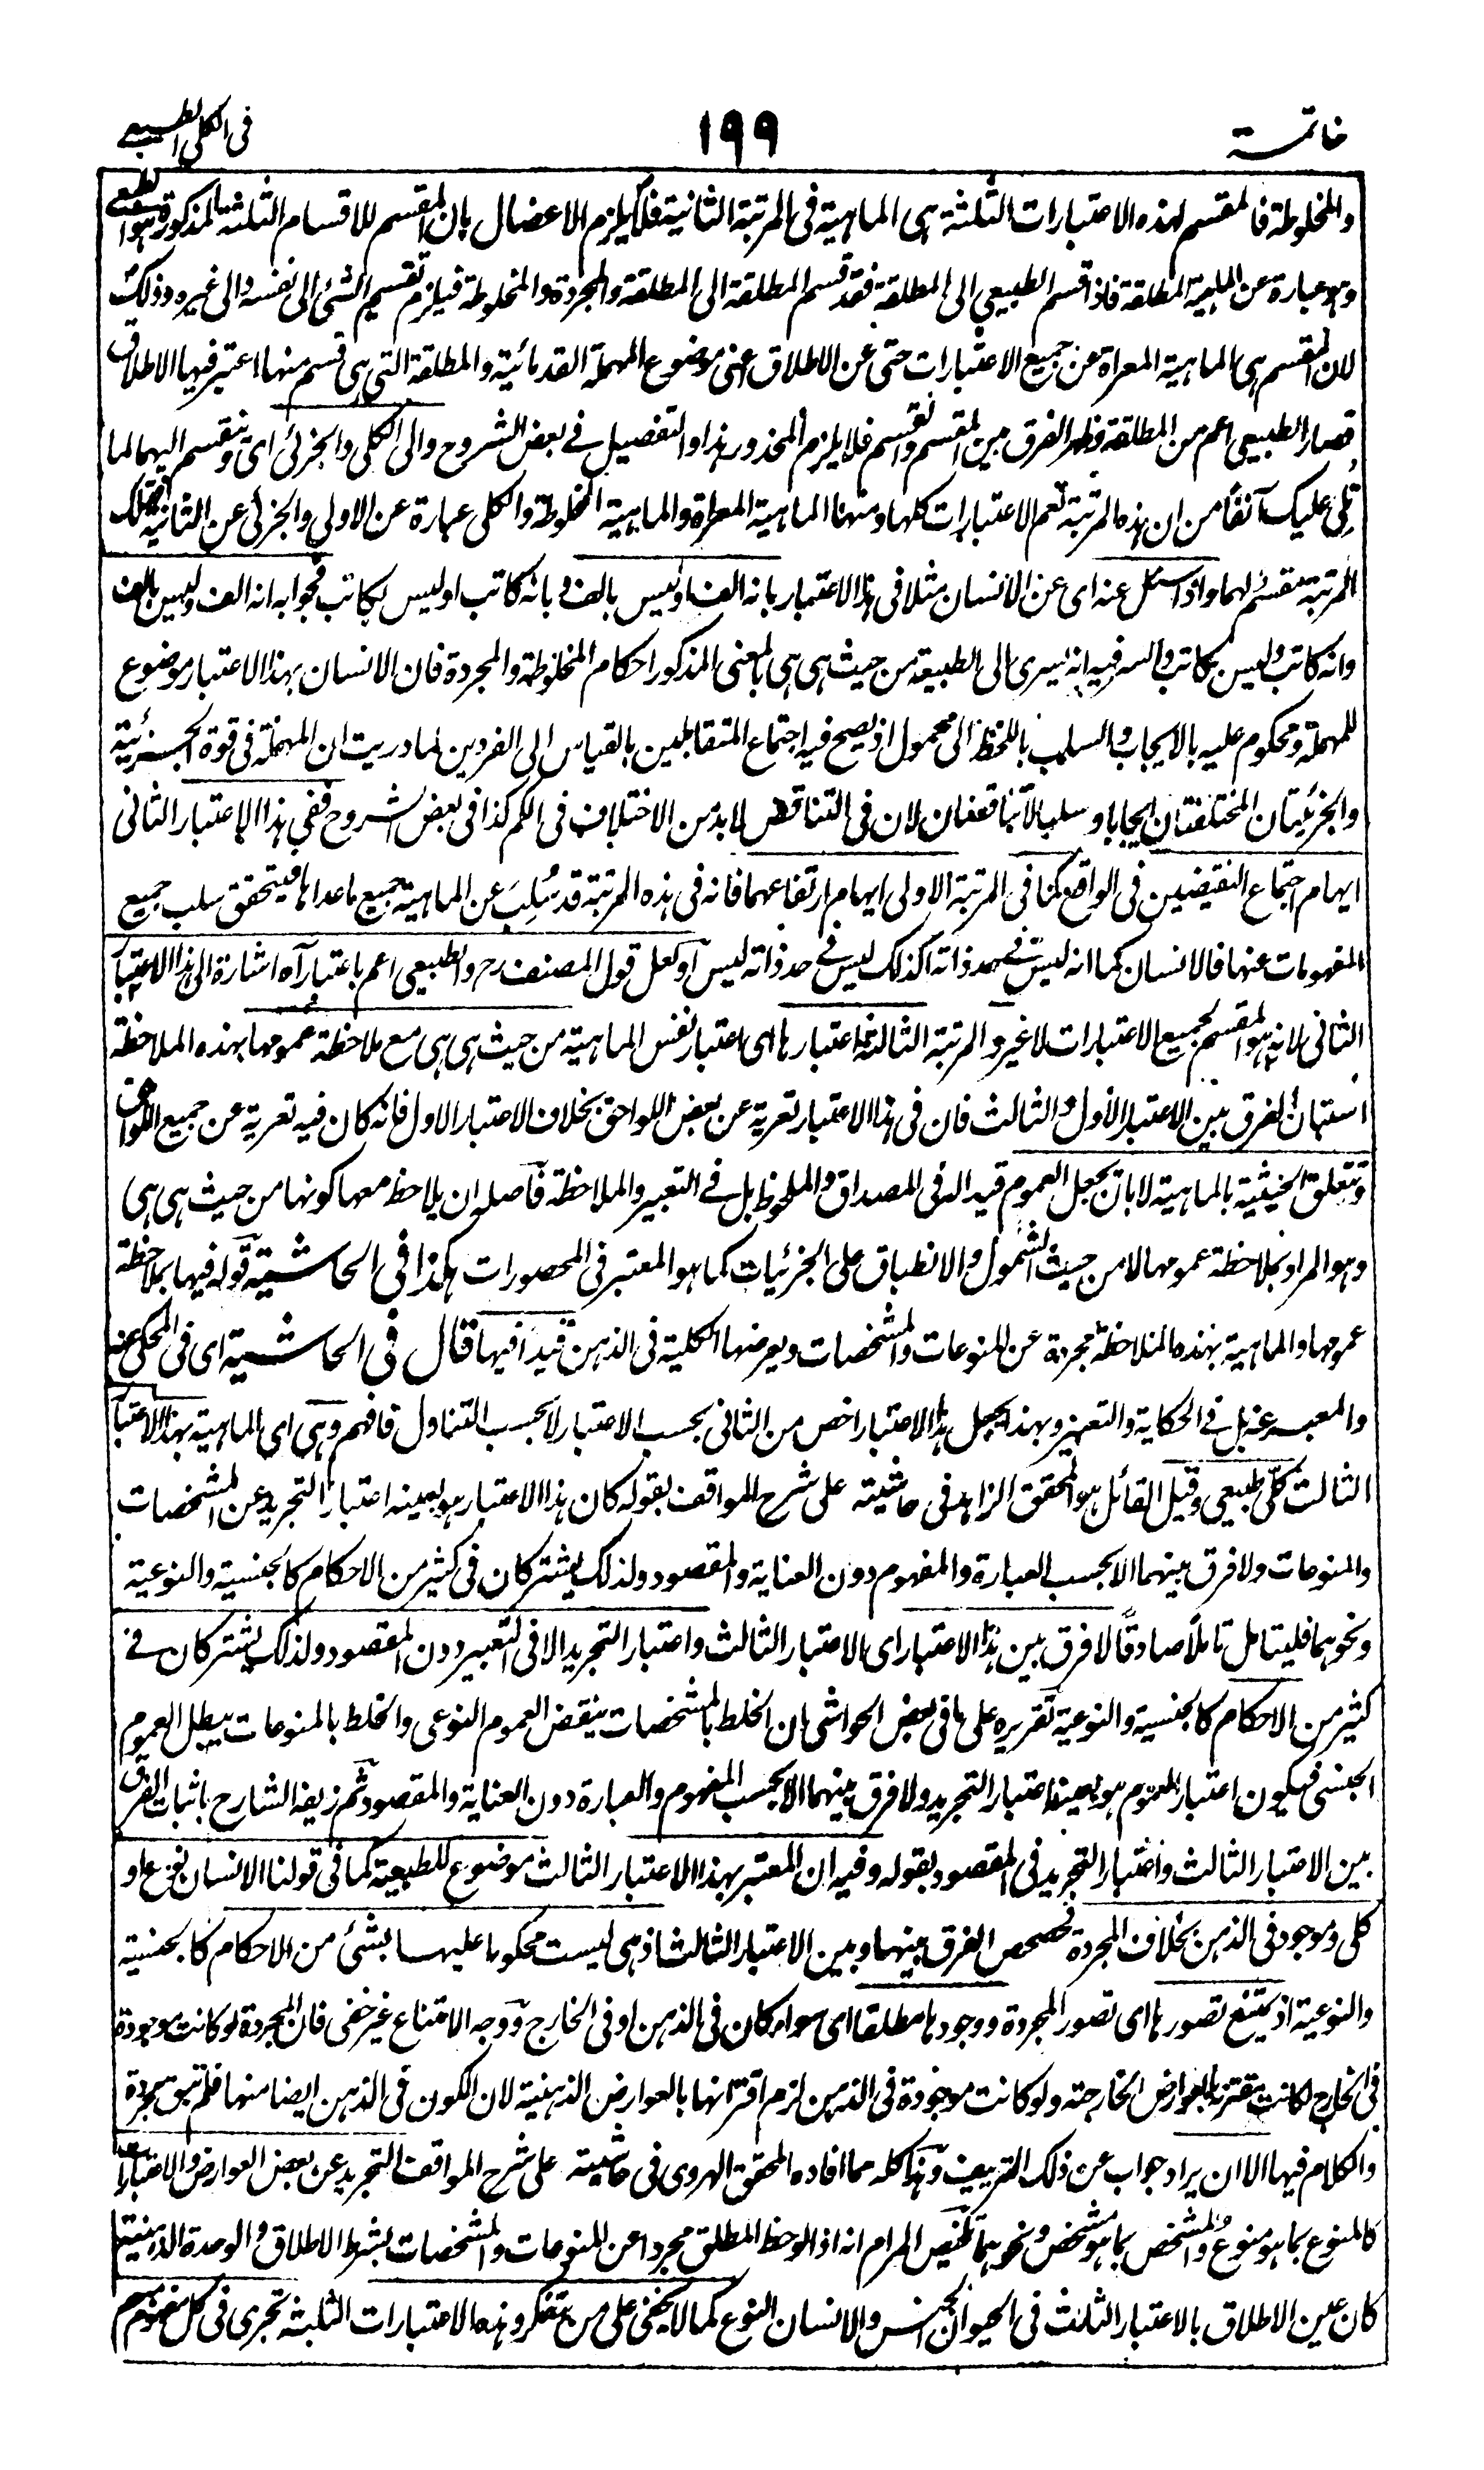 خاتمة ١٩٩ فى الكلى الطبيعي
والمخلوطة فالمقسم لهذه الاعتبارات الثلثة هى الماهية فى المرتبة الثانية فلا يلزم الاعضال بان المقسم للاقسام الثلثة المذكورة هو الطبعي
وهو عبارة عن المطلقة فاذا قسم الطبيعي الى المطلقة فقد قسم المطلقة الى المطلقة والمجردة والمخلوطة فيلزم تقسيم الشئ الى نفسه والى غيره وذلك
لان المقسم هى الماهية المعراة عن جميع الاعتبارات حتى عن الاطلاق اعنى موضوع المهملة القدمائية والمطلقة التى هى قسم منها اعتبر فيها الاطلاق
فصار الطبيعي اعم من المطلقة فظهر الفرق بين المقسم والقسم فلا يلزم المحذور هذا والتفصيل فى بعض الشروح والى الكلى والجزئى اى وتنقسم اليهما لما
تلى عليك آنفا من ان هذه المرتبة تعم الاعتبارات كلها ومنها الماهية المعراة والماهية المخلوطة والكلى عبارة عن الاولى والجزئى عن الثانية فتلك
المرتبة مقسم لهما واذا سئل عنه اى عن الانسان مثلا فى هذا الاعتبار بانه الف اوليس بالف وبانه كاتب اوليس بكاتب فجوابه انه الف وليس بالف
وانه كاتب وليس بكاتب والسر فيه انه يسرى الى الطبيعة من حيث هى هى بالمعنى المذكور احكام المخلوطة والمجردة فان الانسان بهذا الاعتبار موضوع
للمهملة ومحكوم عليه بالايجاب والسلب باللحظ الى محمول اذ يصح فيه اجتماع المتقابلين بالقياس الى الفردين لما دريت ان المهملة فى قوة الجزئية
والجزئيتان المختلفتان ايجابا وسلبا لا تتناقضان لان فى التناقض لابد من الاختلاف فى الكم كذا فى بعض الشروح ففى هذا الاعتبار الثانى
ايهام اجتماع النقيضين فى الواقع كما فى المرتبة الاولى ايهام ارتفاعهما فانه فى هذه المرتبة قد سُلِبَ عن الماهية جميع ما عداها فيتحقق سلب جميع
المفهومات عنها فالانسان كما انه ليس فى حد ذاته اكذلك ليس فى حد ذاته ليس آ ولعل قول المصنف رح والطبيعى اعم باعتبار آه اشارة الى هذا الاعتبار
الثانى لانه هو المقسم لجميع الاعتبارات لاغير والمرتبة الثالثة اعتبارها اى اعتبار نفس الماهية من حيث هى هى مع ملاحظة عمومها بهذه الملاحظة
استبان الفرق بين الاعتبار الاول والثالث فان فى هذا الاعتبار تعرية عن بعض اللواحق بخلاف الاعتبار الاول فانه كان فيه تعرية عن جميع اللواحق
وتتعلق الحيثية بالماهية لا بان يجعل العموم قيدا له فى المصداق والملحوظ بل فى التعبير والملاحظة فاصله ان يلاحظ معها كونها من حيث هى هى
وهو المراد بملاحظة عمومها لا من حيث الشمول والانطباق على الجزئيات كما هو المعتبر فى المحصورات هكذا فى الحاشية قوله فيها بملاحظة
عمومها والماهية بهذه الملاحظة مجردة عن المنوعات والمشخصات ويعرضها الكلية فى الذهن قيدا فيها قال فى الحاشية اى فى المحكى عنه
والمعبر عنه بل فى الحكاية والتعبير وبهذا يجعل هذا الاعتبار اخص من الثانى بحسب الاعتبار لا بحسب التناول فافهم وهى اى الماهية بهذا الاعتبار
الثالث كلى طبيعي وقيل القائل هو المحقق الزاهد فى حاشيته على شرح المواقف بقوله كان هذا الاعتبار هو بعينه اعتبار التجريد عن المشخصات
والمنوعات ولا فرق بينهما الا بحسب العبارة والمفهوم دون العناية والمقصود ولذلك يشتركان فى كثير من الاحكام كالجنسية والنوعية
ونحوهما فليتامل تاملا صادقا لا فرق بين هذا الاعتبار اى الاعتبار الثالث واعتبار التجريد الا فى التعبير دون المقصود ولذلك يشتركان فى
كثير من الاحكام كالجنسية والنوعية تقريره على ما فى بعض الحواشى ان الخلط بالمشخصات ينقض العموم النوعى والخلط بالمنوعات يبطل العموم
الجنسى فيكون اعتبار العموم هو بعينه اعتبار التجريد ولا فرق بينهما الا بحسب المفهوم والعبارة دون العناية والمقصود ثم زيفه الشارح باثبات الفرق
بين الاعتبار الثالث واعتبار التجريد فى المقصود بقوله وفيه ان المعتبر بهذا الاعتبار الثالث موضوع للطبيعة كما فى قولنا الانسان نوع او
كلى وموجود فى الذهن بخلاف المجردة فحصحص الفرق بينها وبين الاعتبار الثالث اذ هى ليست محكوما عليها بشئ من الاحكام كالجنسية
والنوعية اذ يمتنع تصورها اى تصور المجردة ووجودها مطلقا اى سواء كان فى الذهن او فى الخارج ووجه الامتناع غير خفى فان المجردة لو كانت موجودة
فى الخارج لكانت مقترنة بالعوارض الخارجة ولو كانت موجودة فى الذهن لزم اقترانها بالعوارض الذهنية لان الكون فى الذهن ايضا منها فلم تبق مجردة
والكلام فيها الا ان يراد جواب عن ذلك التزييف وهذا كله مما افاده المحقق الهروى فى حاشيته على شرح المواقف التجريد عن بعض العوارض والاعتبارات
كالمنوع بما هو منوع والمشخص بما هو مشخص ونحوهما تلخيص المرام انه اذا لوحظ المطلق مجردا عن المنوعات والمشخصات بشرط الاطلاق والوحدة الذهنية
كان عين الاطلاق بالاعتبار الثالث فى الحيوان الجنس والانسان النوع كما لا يخفى على من يتفكر وهذه الاعتبارات الثلثة تجرى فى كل مفهوم